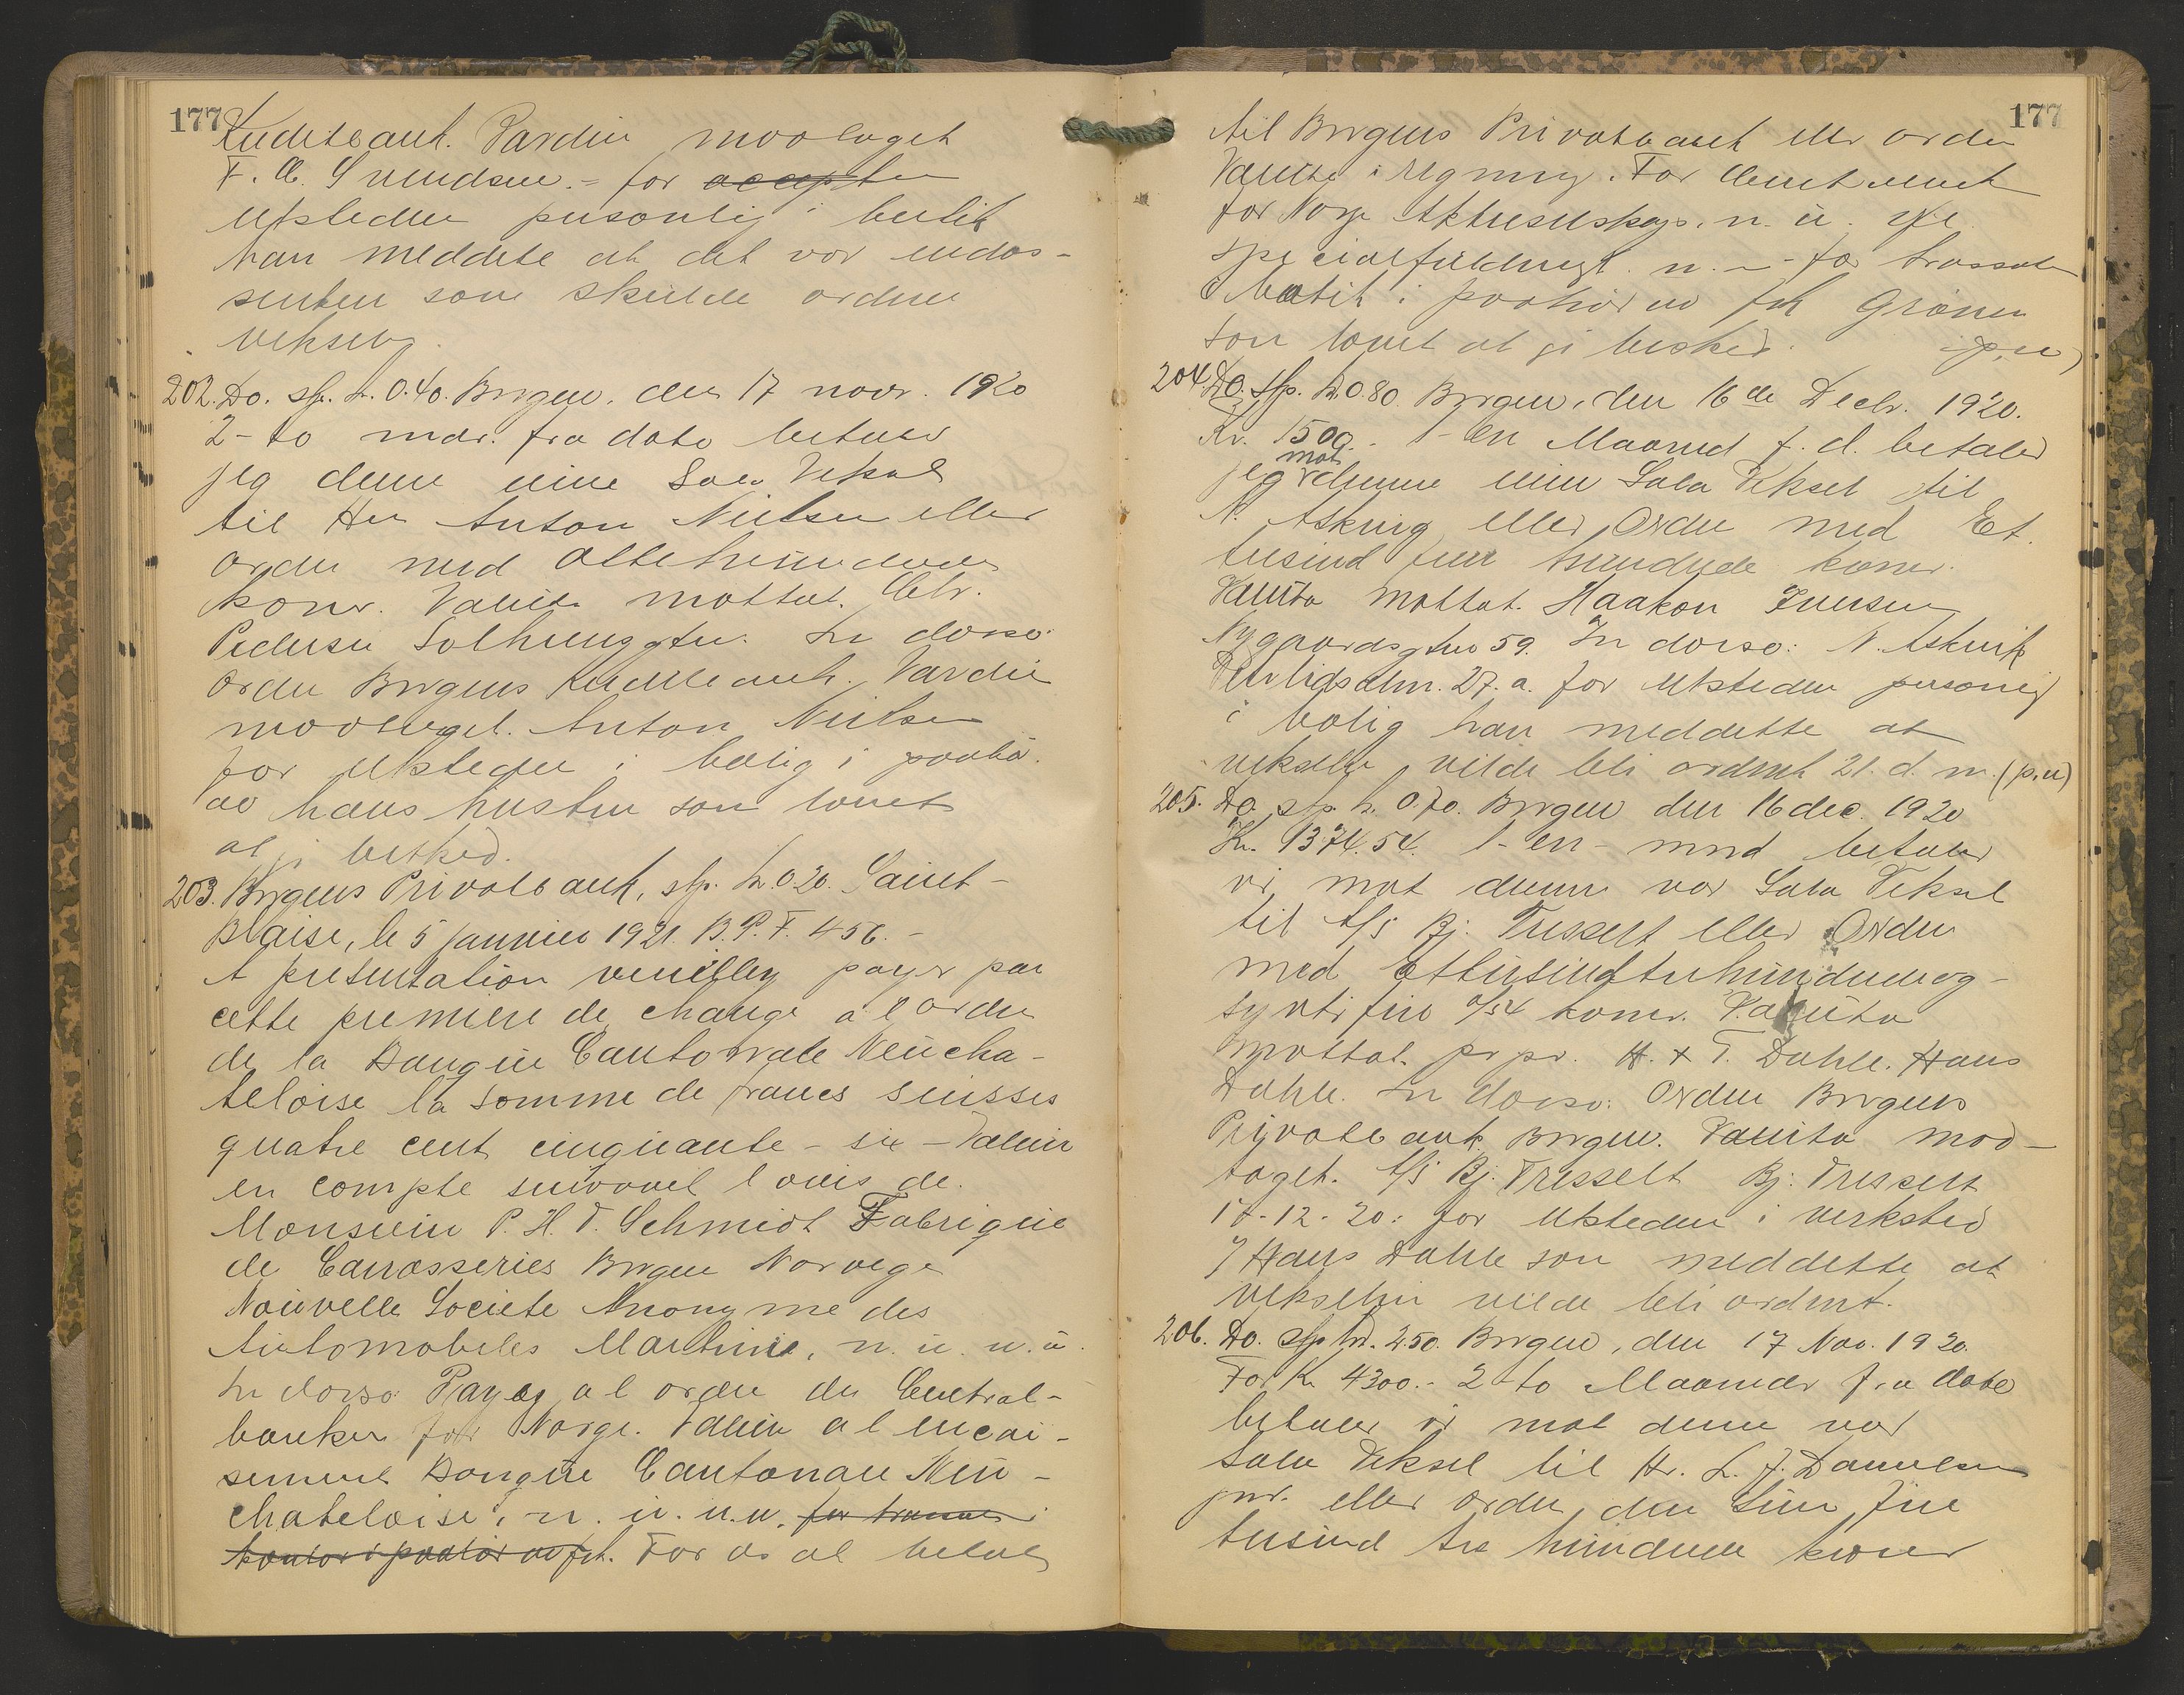 177
Kreditbank. Værdien modtaget
F. C. Svendsen. - for accepten
utstederen personlig i butik
han meddelte at det var endos-
senten som skulde ordne
vekselen.
202. Do. stp. kr. 0.40. Bergen, den 17 novr. 1920
2 - to mdr. fra dato betaler
jeg denne min Sola Veksel
til Hr. Anton Nielsen eller
ordre med ottehundrede
kroner. Valuta mottat. Chr.
Pedersen Solheimsgten. In dorso:
Ordre Bergens Kreditbank. Værdien
modtaget. Anton Nielsen
for utstederen i bolig i paahør
av hans hustru som lovet
at gi besked.
203. Bergens Privatbank, stp. kr. 0.20. Saint-
Blaise, le 5 janvier 1921. B. P. F. 456. -
A presentation veuillez payer par
cette premiere de change a l ordre
de la Banque Cantonale Neucha-
teloise la somme de francs suisses
quatre cent cinquante - six - Valeur
en compte suivant l avis de.
Monsieur P. H. T. Schmidt Fabrique
de Carrosseries Bergen Norvege
Nouvelle Societe Anonyme des
Automobiles Martini, n. u. n. u.
In dorso: Payez a l ordre de Central-
banken for Norge. Valeur a l encai-
sement Banque Cantonale Neu-
chateloise, n. u. n. u. for trassaten i
kontor i paahør av frk. For os at betale
177
til Bergens Privatbank eller ordre
Valuta i regning. For Centralbank
for Norge Aktieselskap. n. u. ifl.
specialfuldmagt. n. - for trassaten
i butik i paahør av frk Grønn
som lovet at gi besked. (p.u)
204. Do. stp. kr. 0.80. Bergen, den 16 de Decbr. 1920.
Kr. 1500.- 1 - en Maaned f. d. betaler
jeg mot denne min Sola Veksel til
N. Askvig eller Ordre med Et
tusind fem hundrede kroner.
Valuta mottat. Haakon Iversen
Nygaardsgten 59. In dorso: N. Askvik
27. a. for utstederen personlig
i bolig han meddelte at
vekselen vilde bli ordnet 21. d. m. (p.u)
205. Do. stp. kr. 0.70. Bergen den 16 dec. 1920
Kr. 1374.54. 1 - en - mnd betaler
vi mot denne vor Sola Veksel
til A/S Bj. Tresselt eller Ordre
med ettusindtrehundredeog-
syttifire o/54 kroner. Valuta
mottat. pr pr. H. & T. Dahle. Hans
Dahle. In dorso: Ordre Bergens
Privatbank Bergen. Valuta mod-
taget. A/S Bj. Tresselt Bj. Tresselt
17-12-20: for utstederen i verksted
v/ Hans Dahle som meddelte at
vekselen vilde bli ordnet.
206. Do. stp kr. 2.50. Bergen, den 17 Nov. 1920.
For Kr 4300.- 2 - to Maaneder fra dato
betaler vi mot denne vor
Sola Veksel til Hr. L. J. Danielsen
jnr. eller ordre, den Sum Fire
tusind tre hundrede kroner